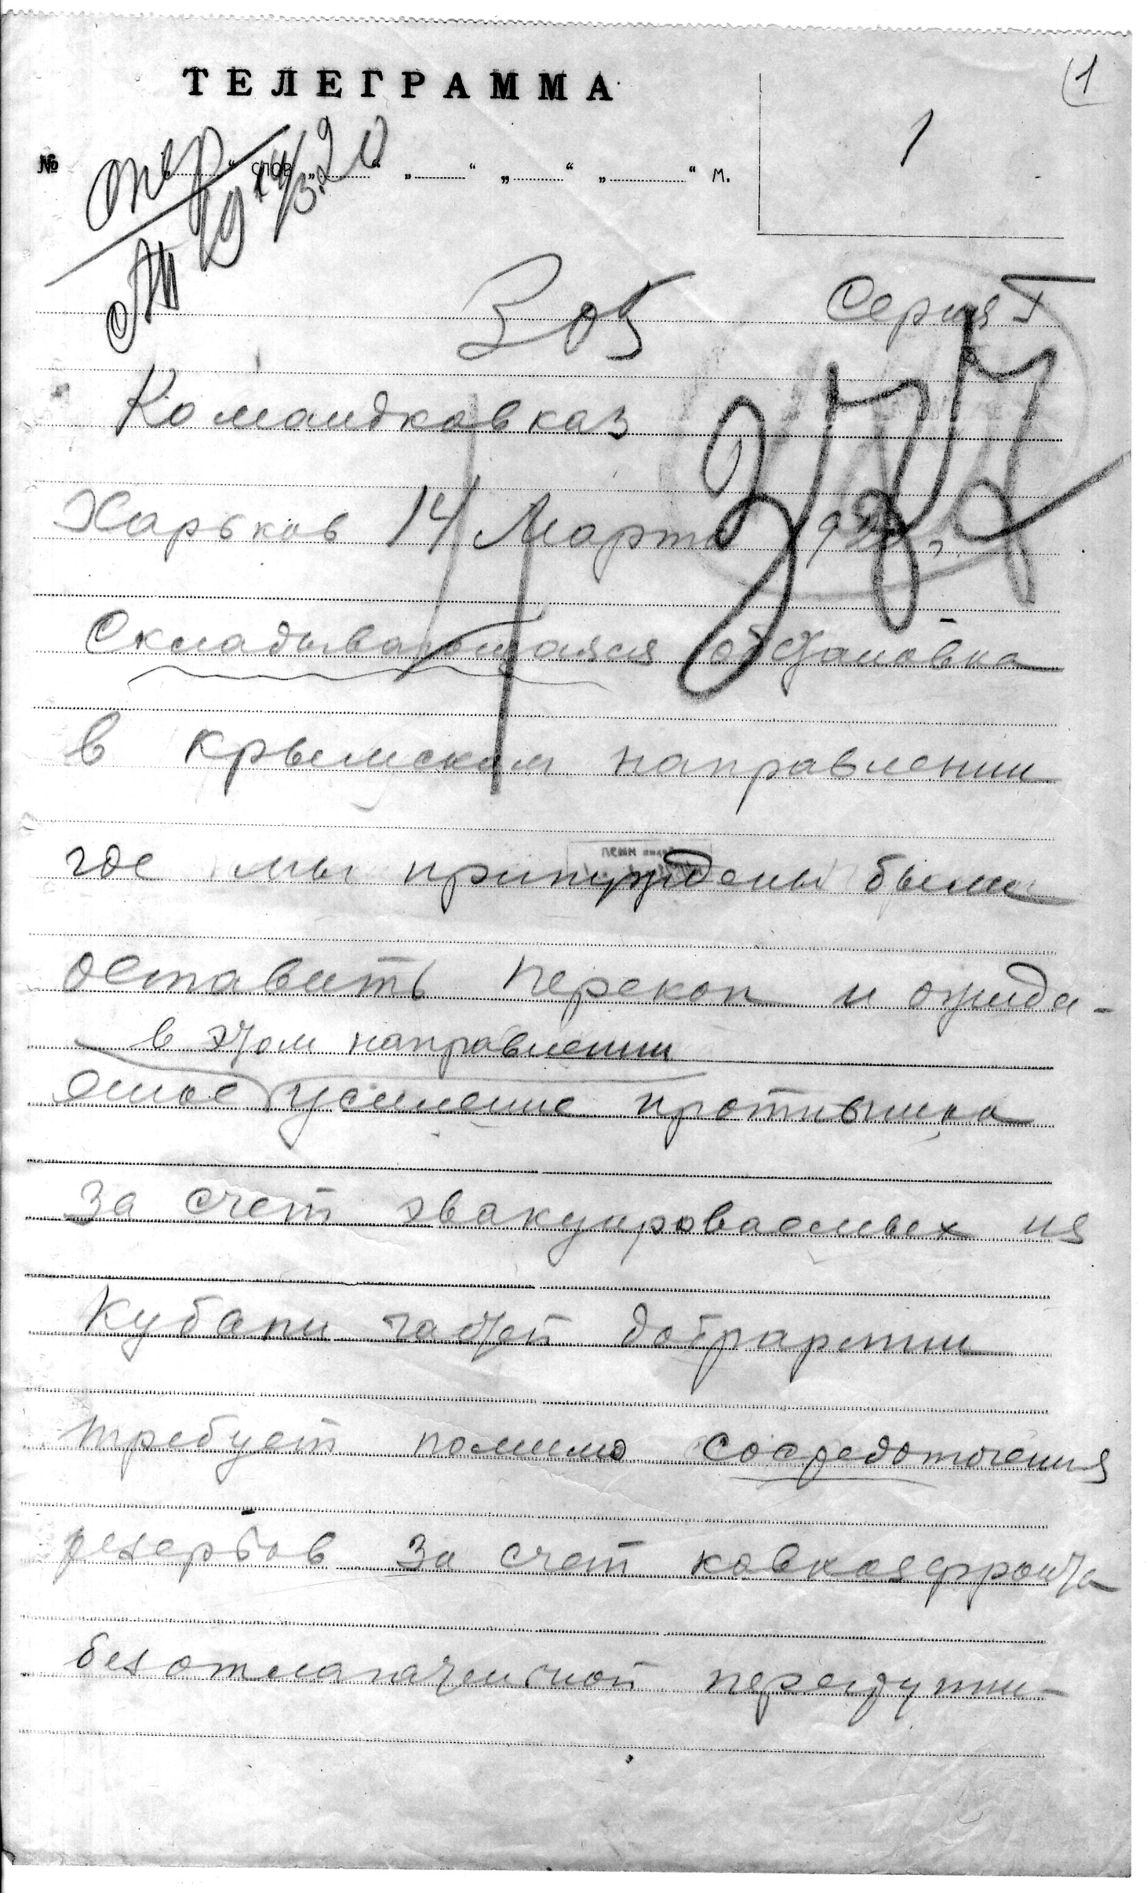 1
ТЕЛЕГРАММА
1
№ опер " слов " " " " м.
19 14/3.20
Серия Г
Командкавказ
Харьков 14 Марта 1920 г.
Складывающаяся обстановка
в крымском направлении
где мы принуждены были
оставить Перекоп и ожида-
в этом направлении
емое усиление противника
за счет эвакуироваемых из
Кубани частей добрармии
требует помимо сосредоточения
резервов за счет кавказфронта
безотлагательной перегруппи-